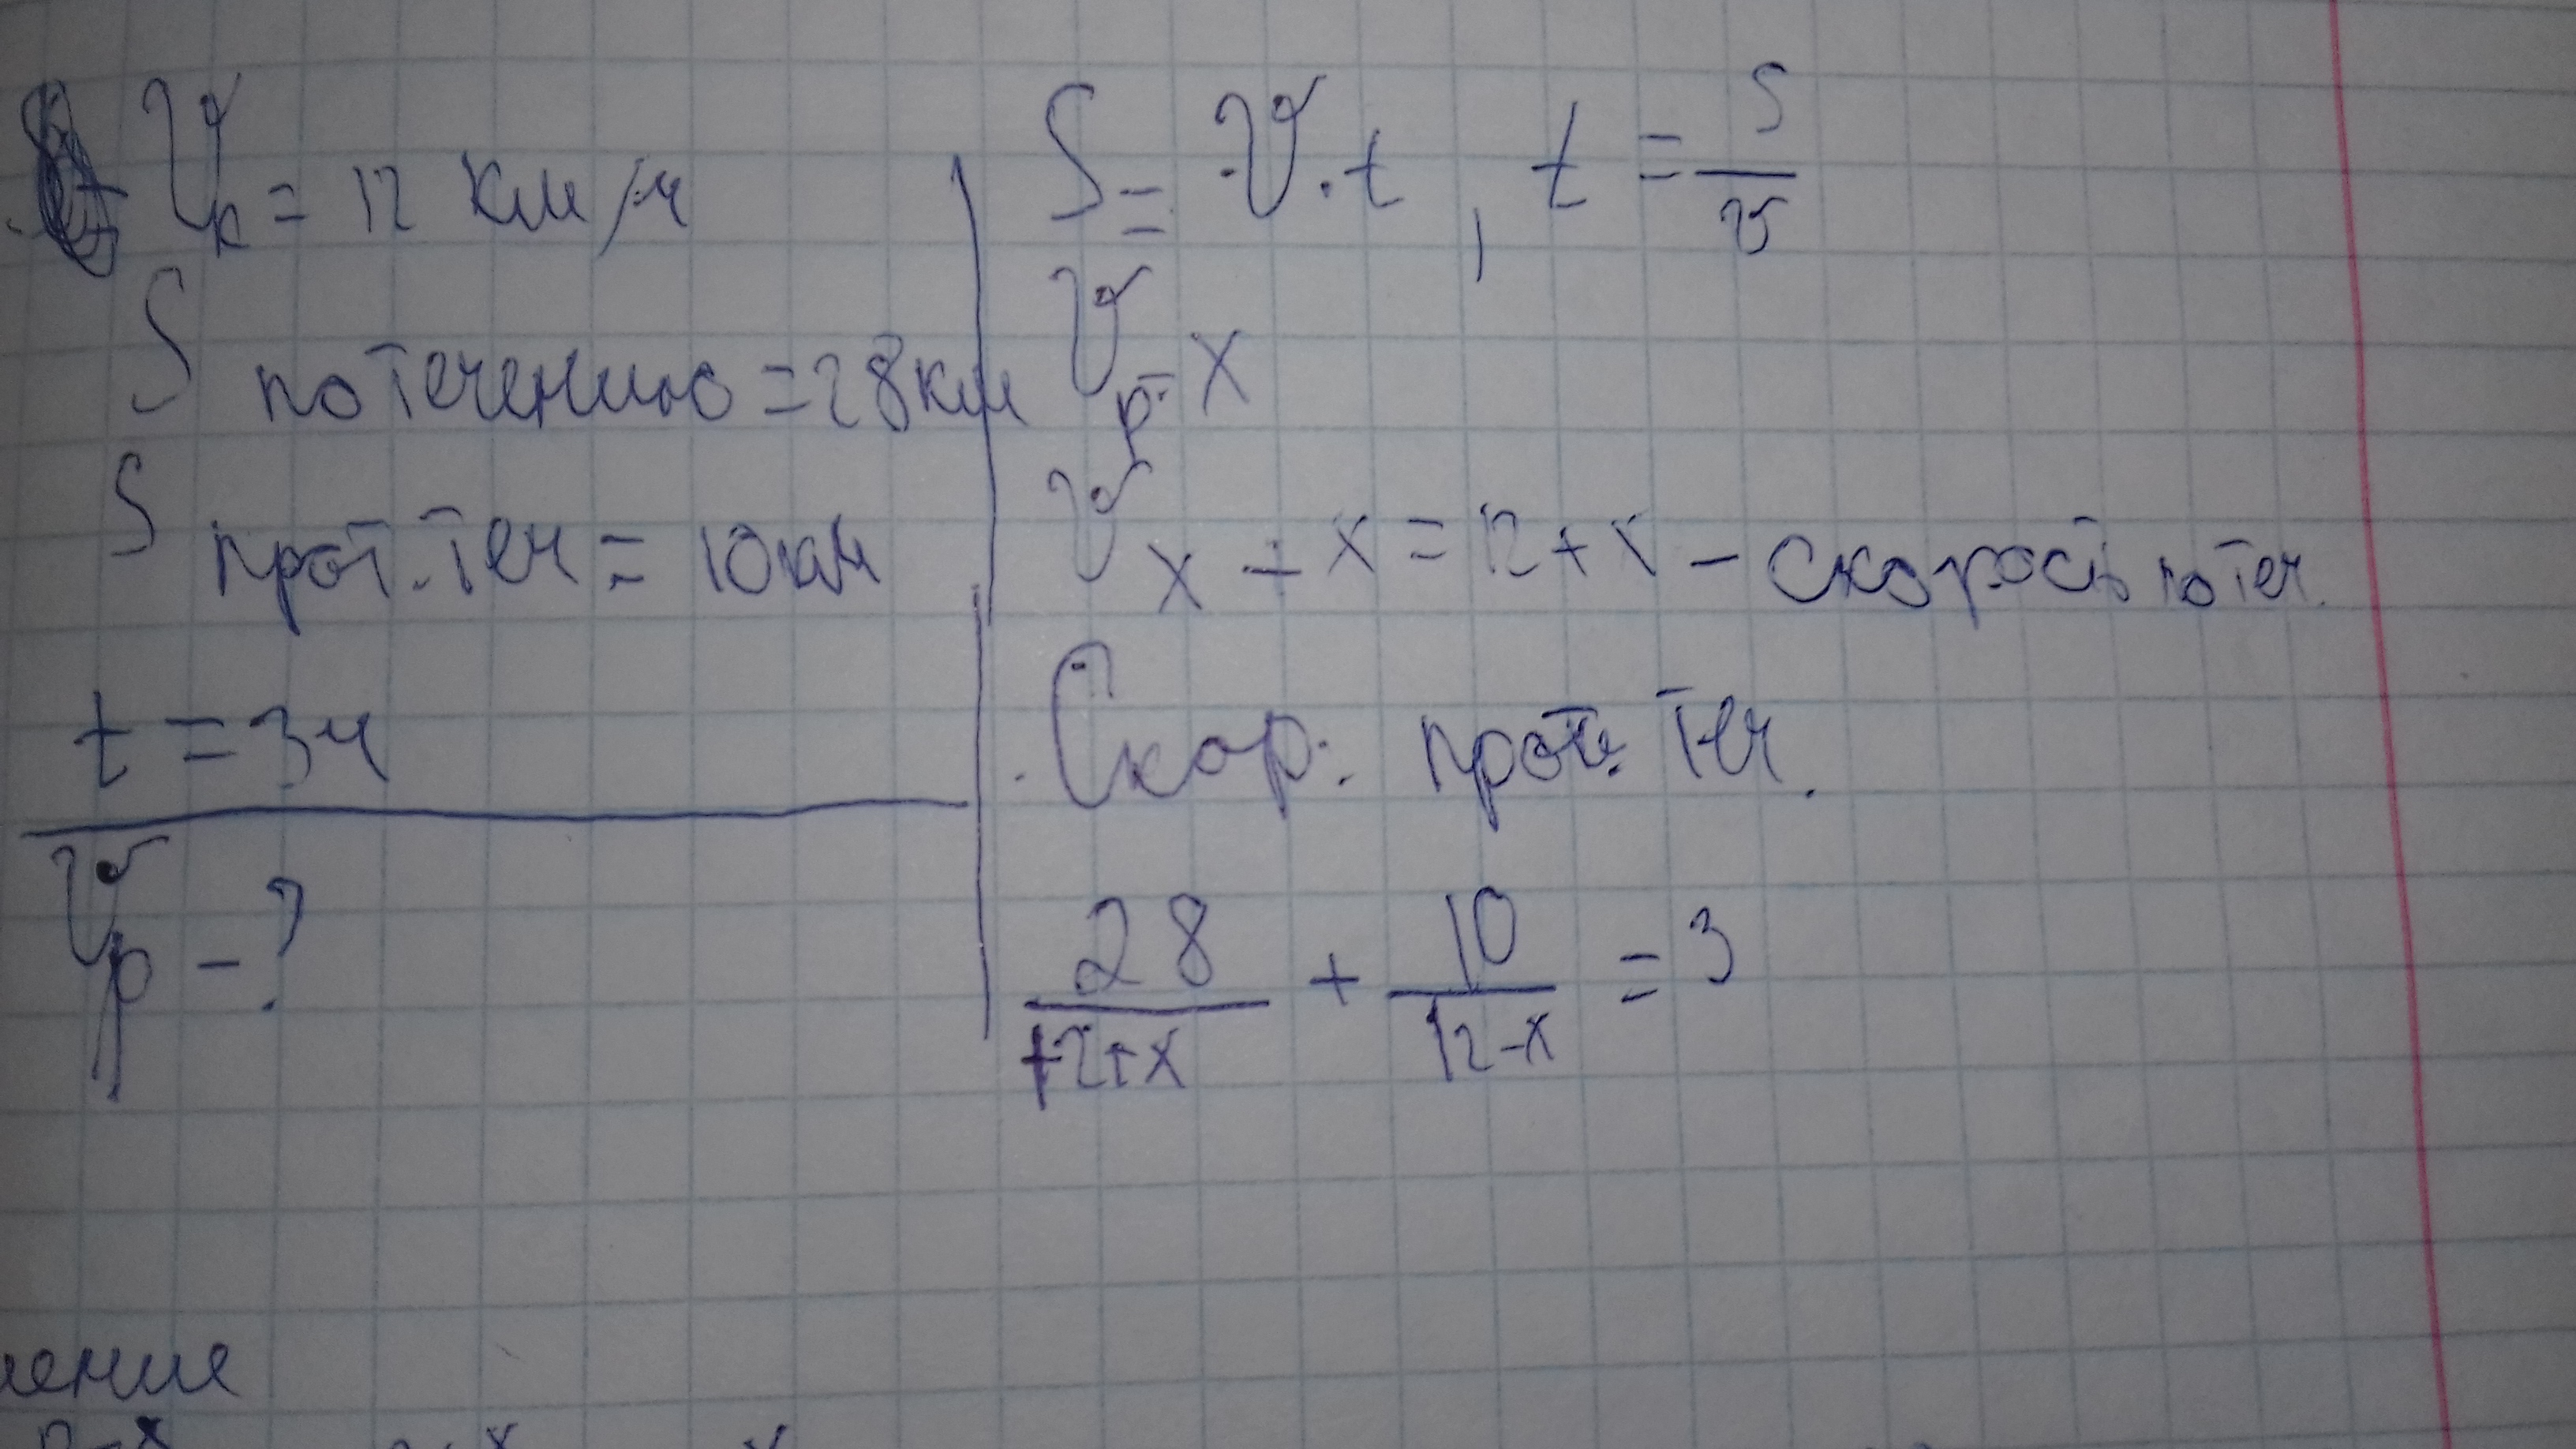 V к = 12 км/ч
S по течению = 28 км
S прот. теч = 10 км
t = 3 ч
Vр - ?
S = V · t , t = S/V
Vр = x
V x + x = 12 + x - скорость по теч.
Скор. прот. теч.
28/12+x + 10/12-x = 3